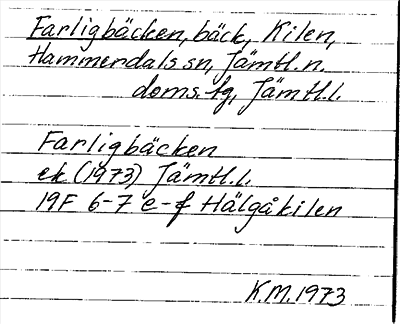 Farligbäcken, bäck, Kilen,
Hammerdals sn, Jämtl.n.
doms.fg, Jämtl.l.
Farligbäcken
ek (1973) Jämtl.l.
19F 6-7 e-f Hälgåkilen
K.M. 1973